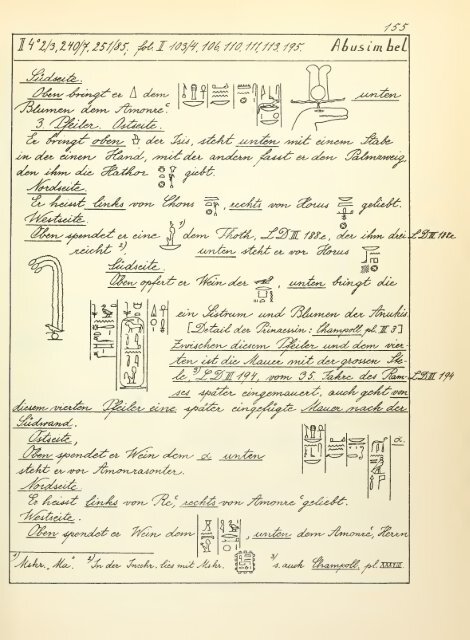 155
II 4° 2/3, 240/7, 251/85, fol. II 103/4, 106, 110, 111, 113, 195. Abusimbel
Südseite.
Oben bringt er dem unten
Blumen dem Amonre'.
3. Pfeiler. Ostseite.
Er bringt oben der Isis, steht unten mit einem Stabe
in der einen Hand, mit der andern fasst er den Palmzweig,
den ihm die Hathor giebt.
Nordseite.
Er heisst links von Chons, rechts von Horus geliebt.
Westseite.
Oben spendet er eine 1) dem Thoth, LD III 188e, der ihm drei LD III 188e
reicht 2) unten steht er vor Horus
Südseite.
Oben opfert er Wein der , unten bringt die
ein Sistrum und Blumen der Anukis.
[Detail der Prinzessin: Champoll. pl. II 3]
Zwischen diesem Pfeiler und dem vier-
ten ist die Mauer mit der grossen Ste-
le, 3) LD III 194, vom 35. Jahre des Ram- LD III 194
ses später eingemauert, auch geht von
diesem vierten Pfeiler eine später eingefügte Mauer nach der
Südwand.
Ostseite,
Oben spendet er Wein dem α unten α
steht er vor Amonrasonter.
Nordseite.
Er heisst links von Re', rechts von Amonre' geliebt.
Westseite.
Oben spendet er Wein dem , unten dem Amonre', Herrn
1) Mskr. „Ma". 2) In der Inschr. lies mit Mskr. 3) s. auch Champoll. pl.